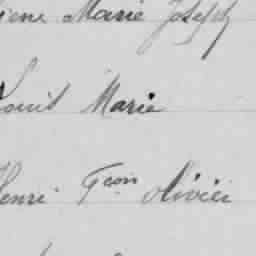 Marie Joseph
Louis Marie
Henri Fcon Olivier